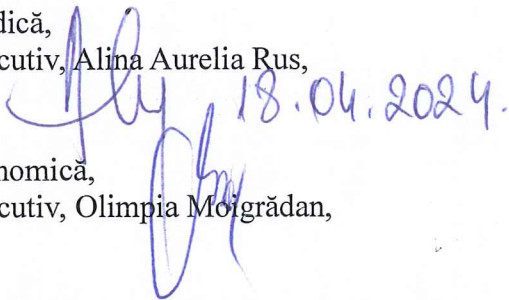 dică,
cutiv, Alina Aurelia Rus,
18.04.2024.
nomică,
cutiv, Olimpia Moigrădan,